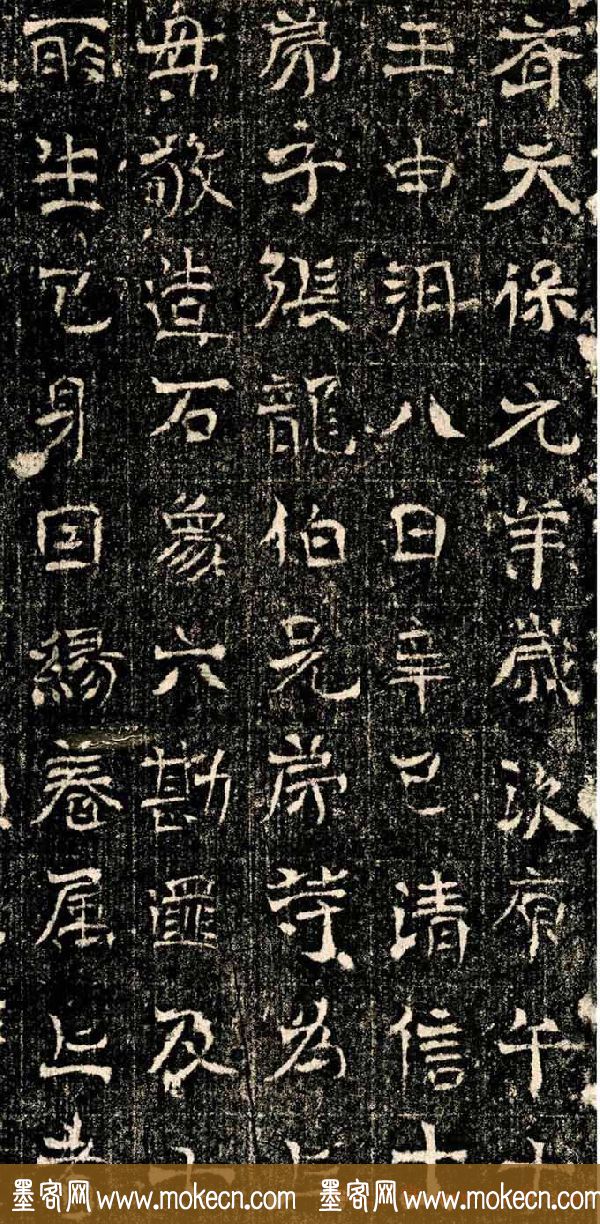 齊天保元年歲次庚午
壬申朔八日辛巳清信
弟子張龍伯兄弟等為
母敬造石象六勘及
所生己身因緣眷属上
墨客网 www.mokecn.com 墨客网 www.mokecn.com